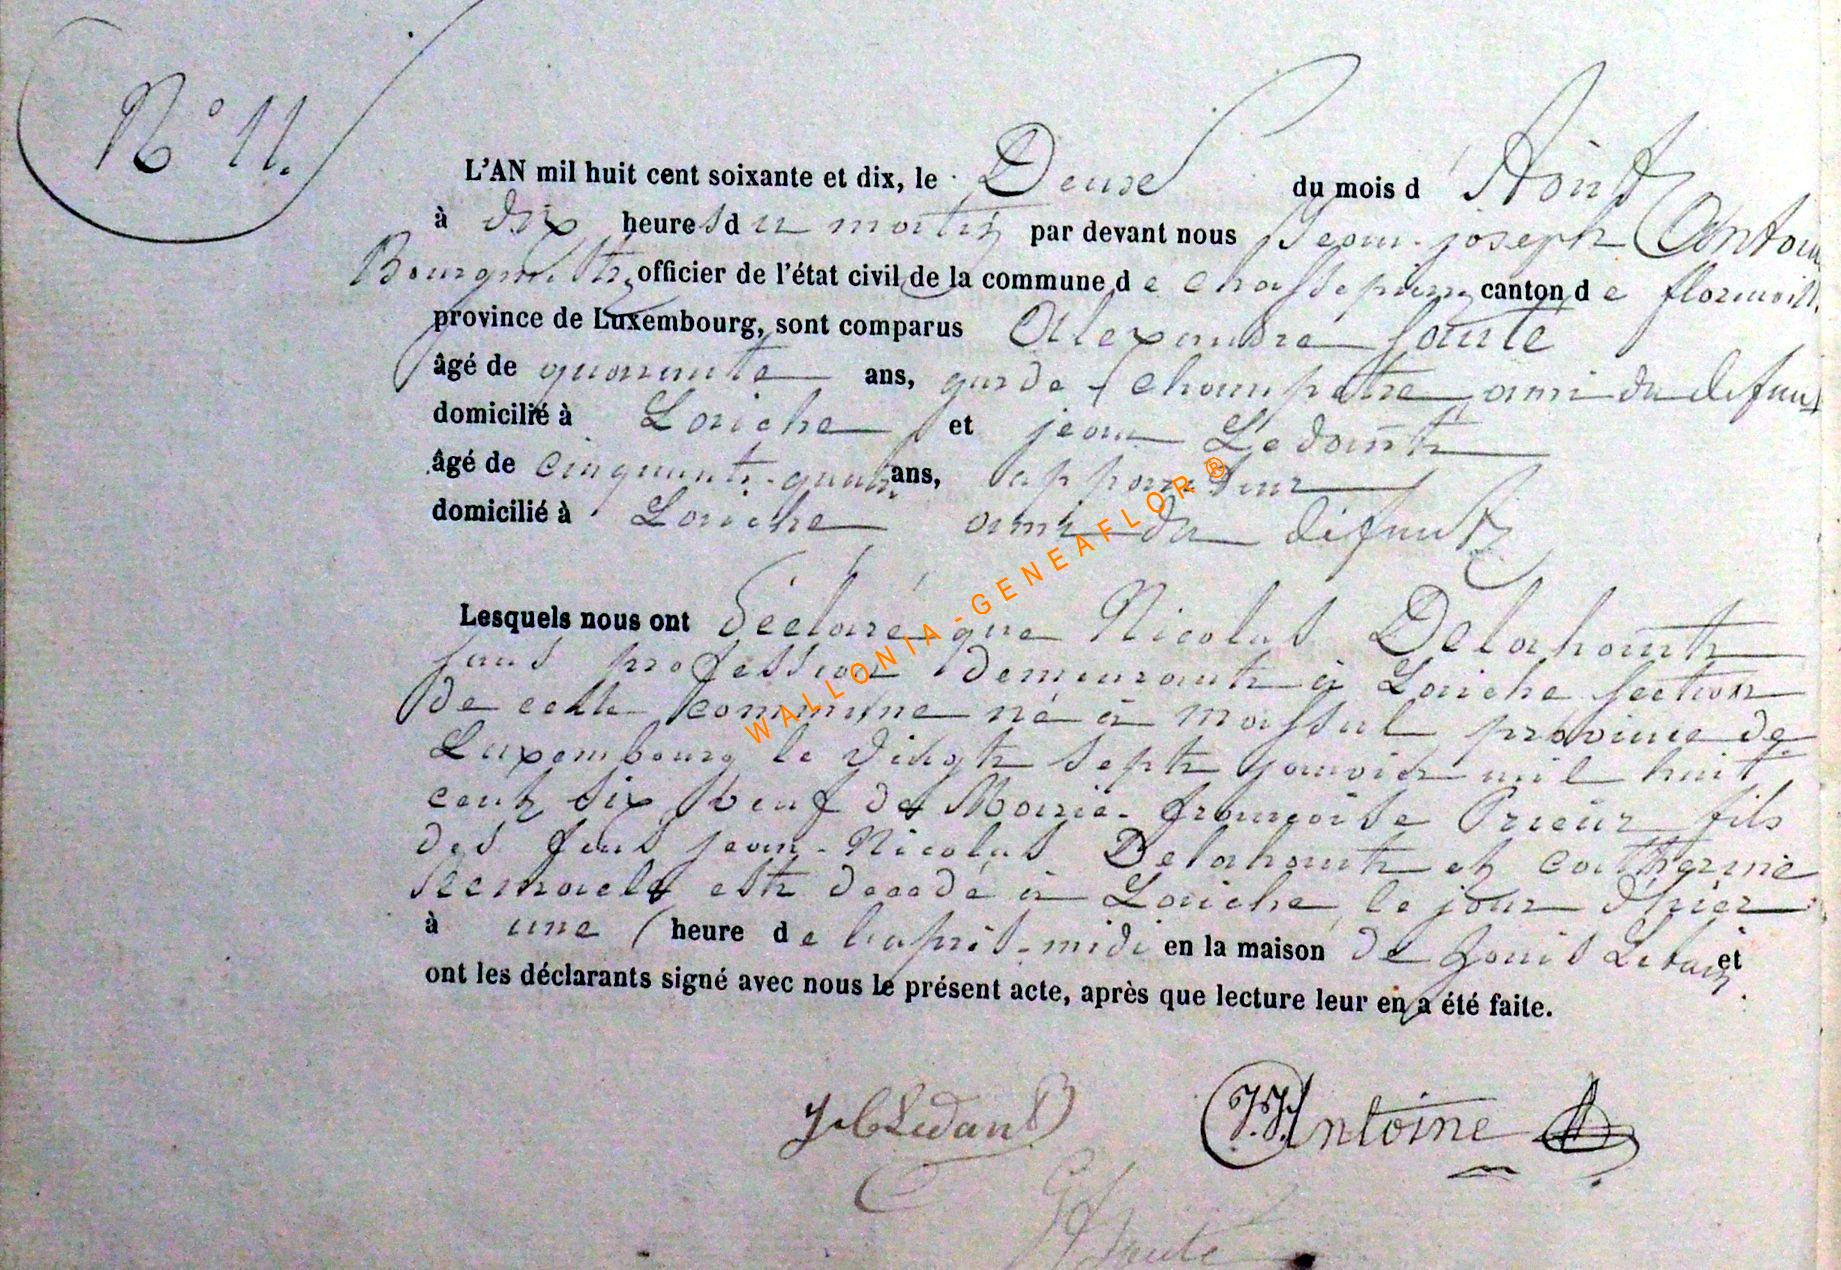 N° 11.
L'AN mil huit cent soixante et dix, le Deuxe du mois d'Aôut
à dix heures du matin par devant nous Jean-joseph Antoine
Bourgmestre, officier de l'état civil de la commune de Chassepierre canton de florenville
province de Luxembourg, sont comparus Alexandre Sauté
âgé de quarante ans, garde-champetre ami du defunt
domicilié à Laiche et jean Ledant
âgé de cinquante-quatre ans,
domicilié à Laiche ami du défunt
Lesquels nous ont déclaré que Nicolas Delahaut
sans profession demeurant à Laiche section
de cette commune né à massul province de
Luxembourg le vingt sept janvier mil huit
cent six veuf de Marie-françoise Prieur fils
des feus jean-Nicolas Delahaut et catherine
est decedé à Laiche le jour d'hier
à une heure de l'après-midi en la maison de Louis et
ont les déclarants signé avec nous le présent acte, après que lecture leur en a été faite.
Ledant J.J. Antoine
Sauté
WALLONIA-GENEAFLOR®